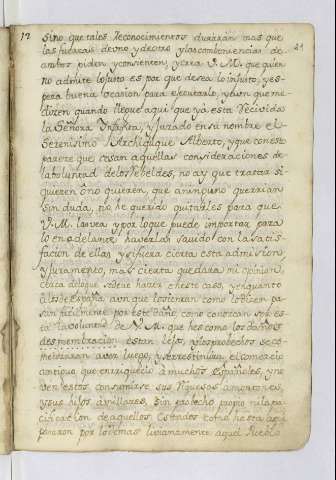 12 21
sino que tales Reconocimientos durarán mas que
las fuerças de uno y de otro y las combeniencias de
ambos piden y consienten, y crea V. M. que quien
no admite lo justo es por que desea lo injusto, y es-
pera buena ocasion para executarlo, y aun que me
dizen quando llegue aqui que ya esta Recivida
la Señora Infanta, y Jurado en su nombre el
Serenissimo Archiduque Alberto, y que con esto
parece que cessan aquellas consideraciones de
la voluntad de los Rebeldes, no ay que tratar si
quieren o no quieren, que aun que no querrian
sin duda, no he querido quitarles para que
V. M. las vea y por lo que puede importar para
lo en adelante haverlas savido con la satis-
facion de ellas y si fuera cierta esta admission,
y Juramento, mas cierta quedara mi opinion,
cerca de lo que se deve hazer en este caso, y en quanto
a los de España aun que los tenian como lo dicen pa-
sin facilmente por este daño, como conozcan ser es-
ta la voluntad de V. M. que hes como los daños
desmembracion estan lejos, y los probechos se co-
mensaran aun luego, y se restituira el comercio
antiguo que enriqueció a muchos Españoles, y no
ven estos consumirse sus Riquesas a montones,
y sus hijos a millares, sin probecho propio ni la pa-
cificacion de aquellos Estados como hasta aqui
passaron por lo demas livianamente aquel Pueblo